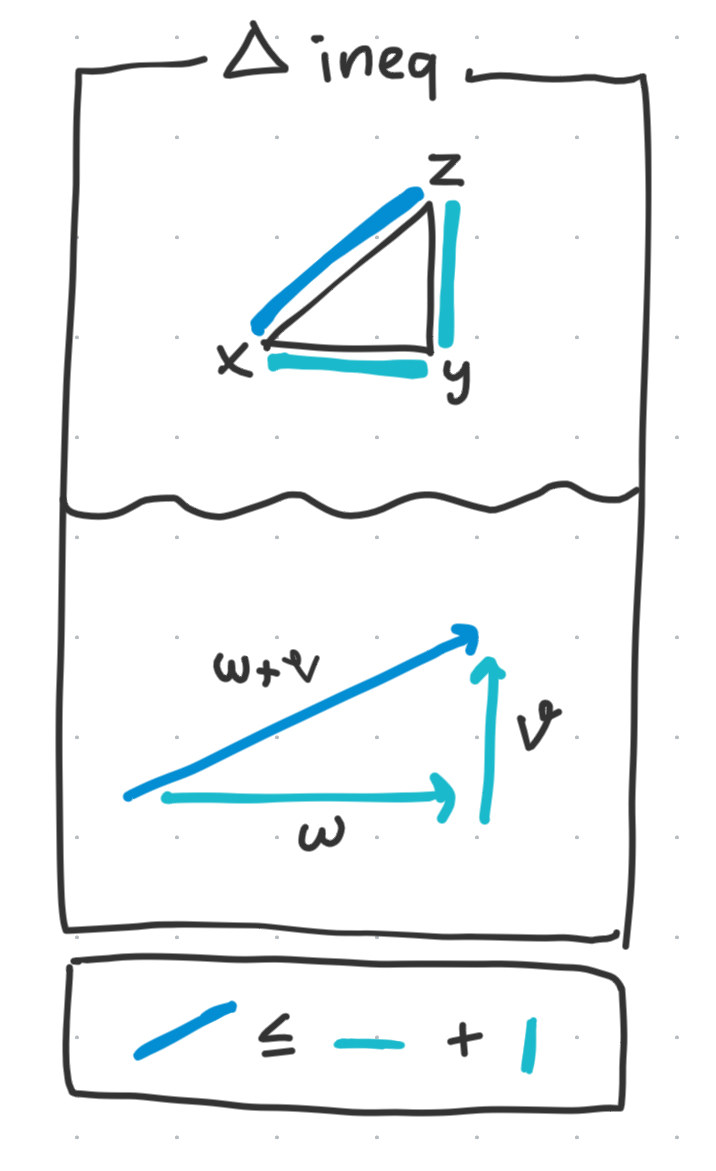 Δ ineq
z
x
y
w+v
v
w
≤ +